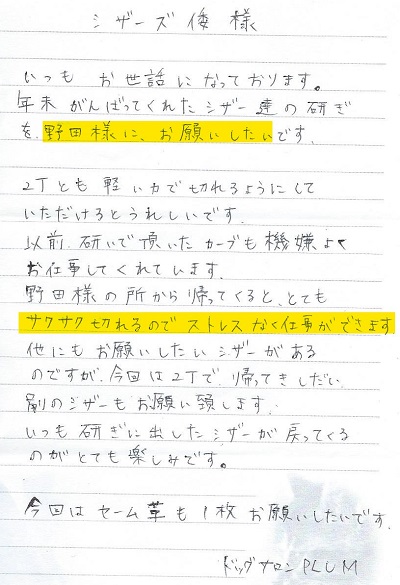 シザーズ 倭 様
いつも お世話になっております。
年末 がんばってくれた シザー 達の研ぎ
を 野田様に、お願いしたいです。
2丁とも 軽い力で切れるようにして
いただけるとうれしいです。
以前 研いで頂いた カーブも 機嫌よく
お仕事してくれています。
野田様の所から帰ってくると、とても
サクサク切れるので ストレスなく仕事ができます
他にもお願いしたいシザーがある
のですが、今回は2丁で、帰ってきしだい
別のシザーもお願い致します。
いつも 研ぎに出したシザーが戻ってくる
のがとても楽しみです。
今回は セーム革も1枚 お願いしたいです。
ドッグサロン PLUM